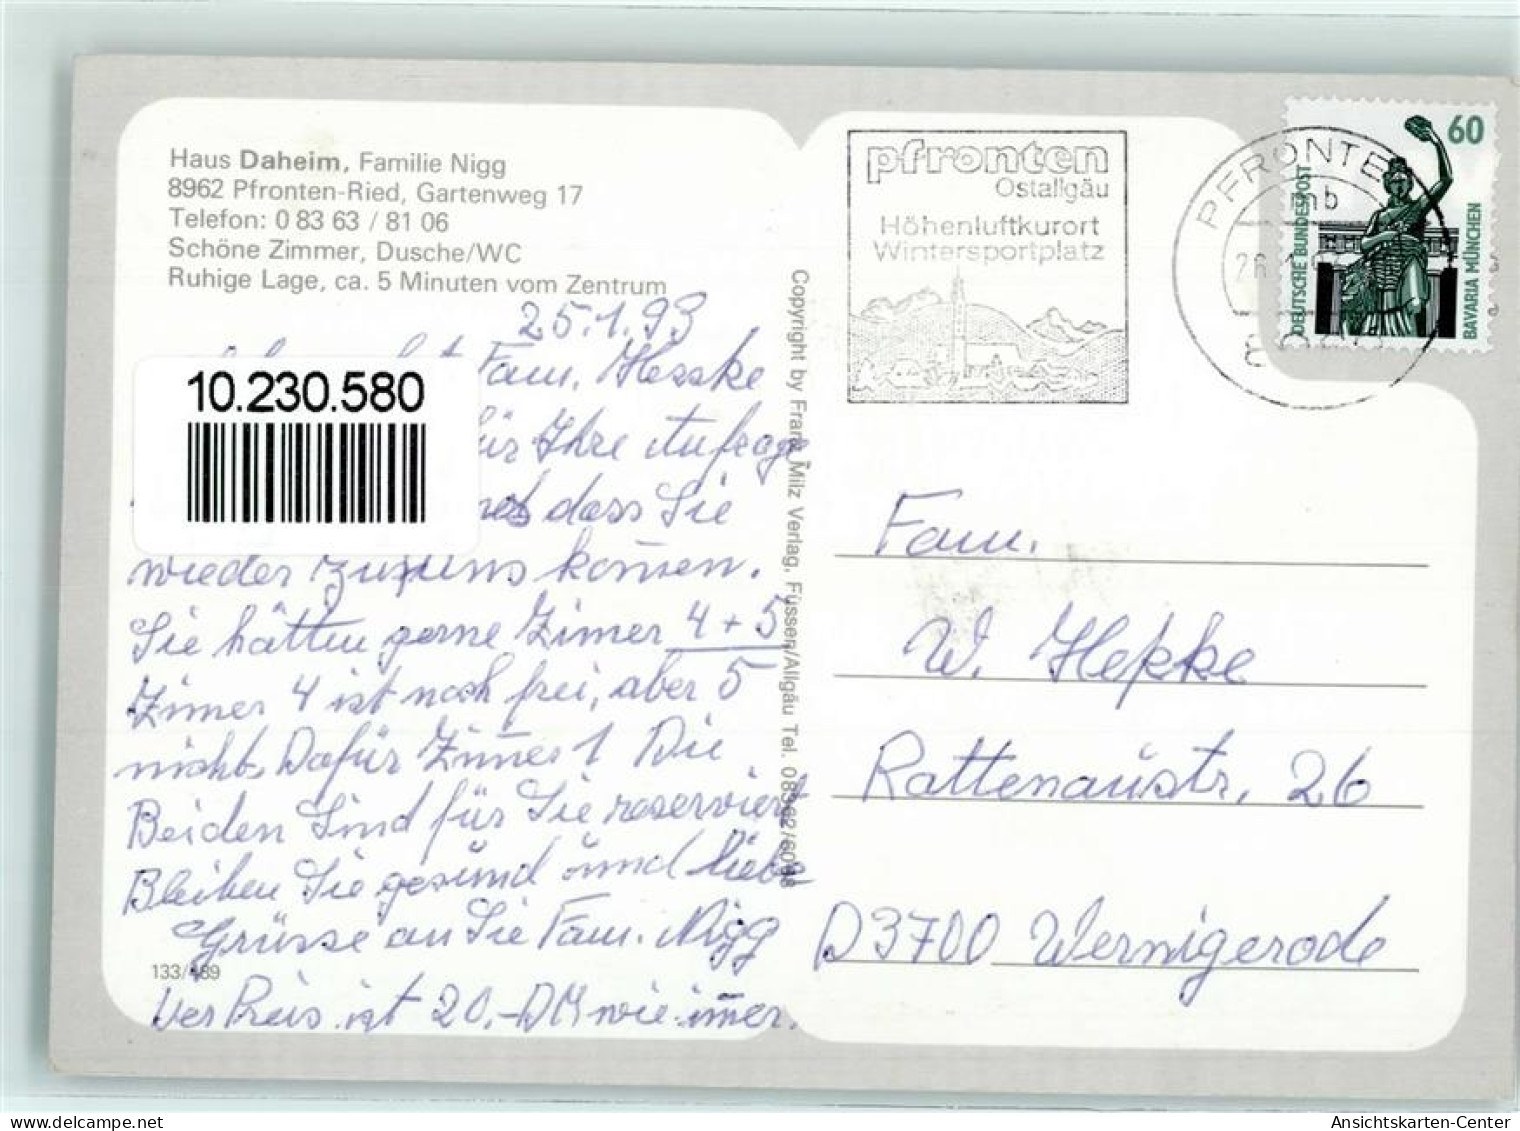 Haus Daheim, Familie Nigg
8962 Pfronten-Ried, Gartenweg 17
Telefon: 0 83 63 / 81 06
Schöne Zimmer, Dusche/WC
Ruhige Lage, ca. 5 Minuten vom Zentrum
25.1.93
Fam. Hepke
10.230.580
für Ihre Aufrage
dass Sie
wieder zu uns kom̄en.
Sie hätten gerne Zim̄er 4 + 5
Zim̄er 4 ist noch frei, aber 5
nicht. Dafür Zim̄er 1 Die
Beiden Sind für Sie reserviert
Bleiben Sie gesund und liebe
Grüsse an Sie Fam. Nigg
133/489
Der Preis ist 20.-DM wie im̄er.
Copyright by Franz Milz Verlag, Füssen/Allgäu Tel. 08362/6048
pfronten
Ostallgäu
Höhenluftkurort
Wintersportplatz
PFRONTEN
mb
60
DEUTSCHE BUNDESPOST
BAVARIA MÜNCHEN
Fam.
W. Hepke
Rattenaustr. 26
D3700 Wernigerode
delcampe.net
Ansichtskarten-Center